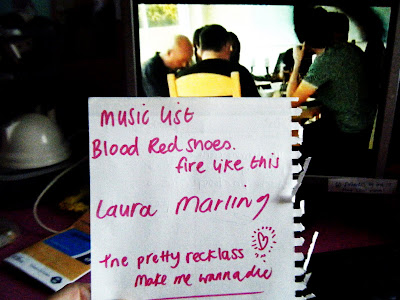 music list
Blood Red shoes.
fire like this
Laura Marling
the pretty recklass
make me wanna die